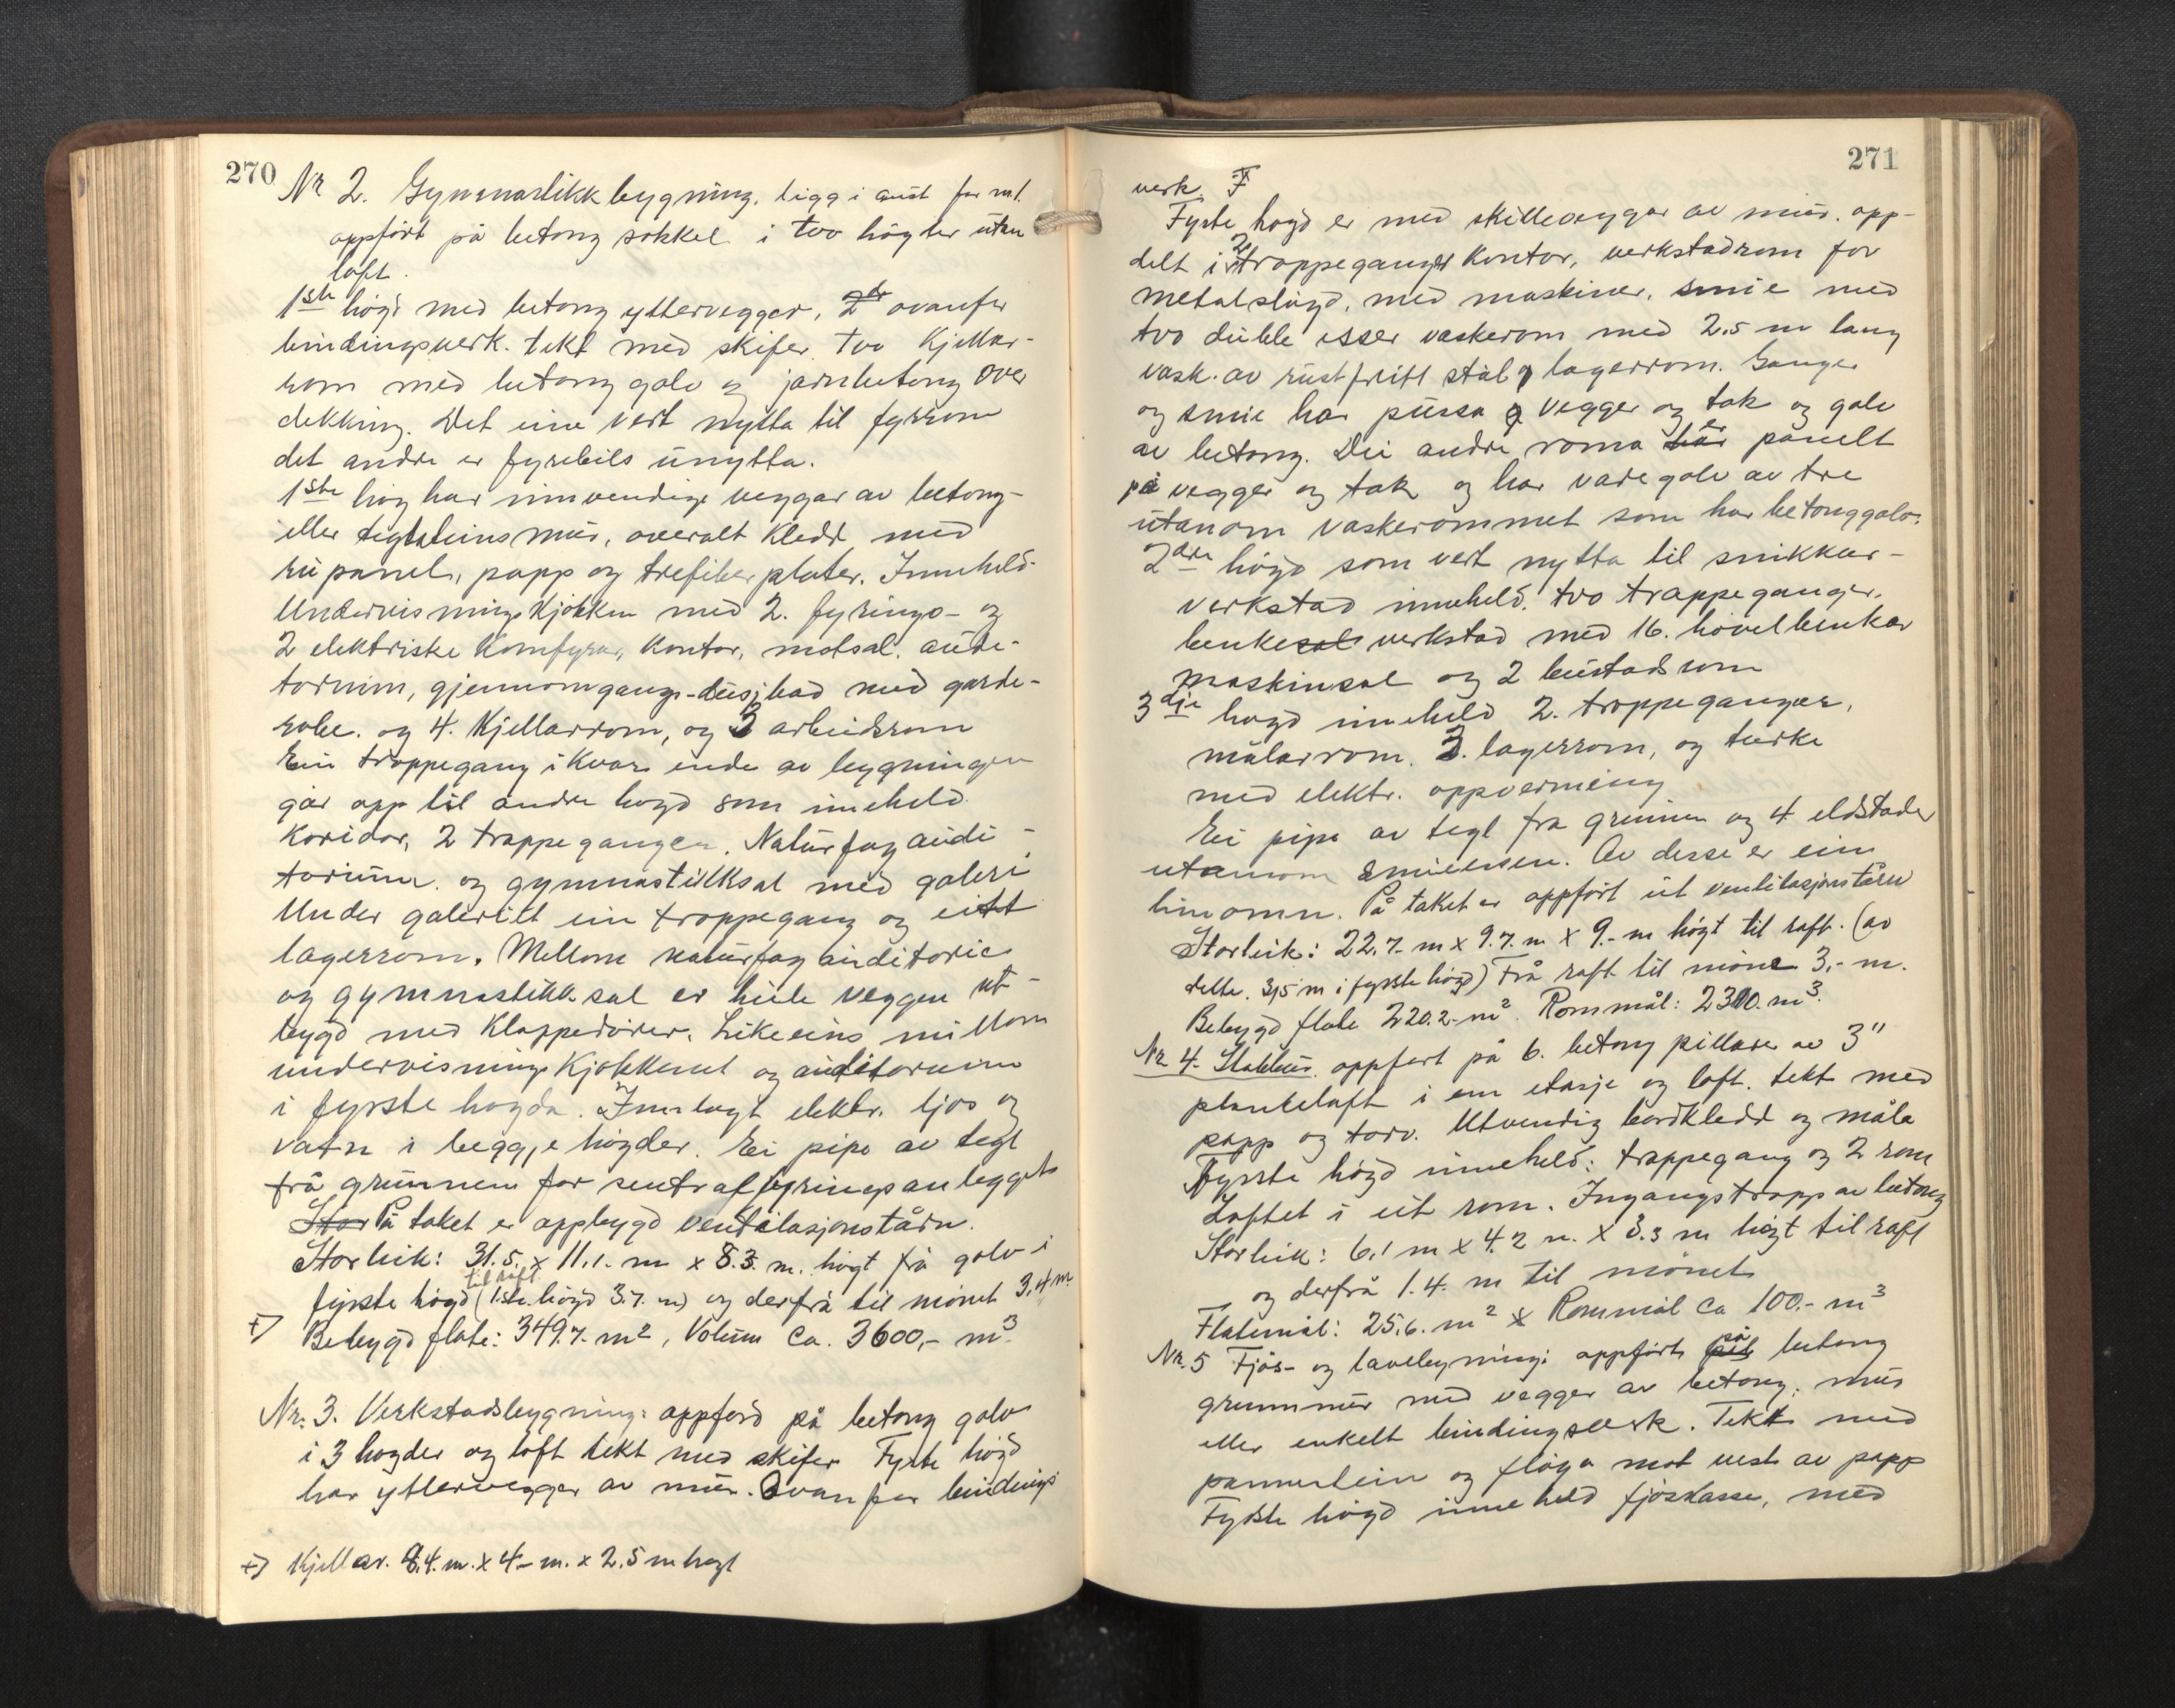 270
Nr 2. Gymnastikkbygning, ligg i aust for nr 1.
oppført på betong sokkel i tvo høgder utan
loft.
1ste høgd med betong yttervegger, 2de ovanfor
bindingsverk. tekt med skifer. tvo Kjellar-
rom med betong golv og jarnbetong over
dekking. Det eine vert nytta til fyrrom
det andre er fyrebils unytta.
1ste høg har innvendige veggar av betong-
eller teglsteins mur, overalt kledd med
rupanel, papp og trefiberplater. Inneheld
Undervisningskjøkken med 2. fyrings- og
2 elektriske Komfyrar, Kontor, matsal, audi-
torium, gjennomgangs-dusjbad med garde-
robe. og 4. Kjellarrom, og 3 arbeidsrom
Ein trappegang i Kvar ende av bygningen
går opp til andre høgd som inneheld
Koridor, 2 trappeganger, Naturfag audi-
torium og gymnastikksal med galeri
Under galeriet ein trappegang og eitt
lagerrom. Mellom naturfag auditorie
og gymnastikksal er heile veggen ut-
bygd med Klappedører. Likeeins millom
undervisningskjøkkenet og auditorium
i fyrste høgda. Innlagt elektr. ljos og
vatn i beggje høgder. Ei pipe av tegl
frå grunnen for sentralfyringsanlegget
Stor På taket er oppbygd ventilasjonstårn.
Storleik: 31.5. x 11.1. m x 8.3. m. høgt frå golv i
til raft
fyrste høgd (1ste. høgd 3.7. m) og derfrå til mønet 3,4 m.
+) Bebygd flate: 349.7. m2, Volum Ca. 3600,- m3.
Nr. 3. Verkstadsbygning: oppførd på betong golv
i 3 høgder og loft tekt med skifer Fyrste høgd
har yttervegger av mur. Ovanfor bindings
+) Kjellar. 8.4. m. x 4.- m. x 2.5 m høgt
271
verk. F
Fyrste høgd er med skillevegger av mur. opp-
delt i 2 trappeganger Kontor, verkstadrom for
metalsløyd, med maskiner, smie med
tvo duble esser vaskerom med 2.5 m lang
vask. av rustfritt stål og lagerrom. Ganger
og smie har pussa vegger og tak og golv
av betong. Dei andre roma har er panelt
på vegger og tak og har vare golv av tre
utanom vaskerommet som har betonggolv.
2dre høgd som vert nytta til snikkar-
verkstad inneheld. tvo trappeganger.
benkesal verkstad med 16. høvelbenkar
maskinsal og 2 bustadsrom
3dje høgd inneheld 2. trappeganger,
målarrom. 3. lagerrom, og turke
med elektr. oppverming
Ei pipe av tegl fra grunnen og 4 eldstader
utanom smieessen. Av desse er ein
limomn. På taket er oppført eit ventilasjonstårn
Storleik: 22.7. m x 9.7. m x 9.- m høgt til raft. (av
dette. 3,5 m i fyrste høgd) Frå raft til møne 3,- m.
Bebygd flate 220.2- m2. Rommål: 2310. m3.
Nr 4. Stabbur. oppført på 6. betong pillarer av 3"
plankelaft i en etasje og loft. tekt med
papp og torv. Utvendig bordkledd og måla
Fyrste høgd inneheld: trappegang og 2 rom
Loftet i eit rom. Ingangstrapp av betong
Storleik: 6.1 m x 4.2 m. x 3.3 m høgt til raft
og derfrå 1.4. m til mønet
Flatemål: 25.6. m2 x Rommål Ca 100.- m3
Nr. 5 Fjøs- og låvebygning: oppført på betong
grunnmur med vegger av betong, mur
eller enkelt bindingsverk. Tekt med
pannestein og fløya mot vest av papp
Fyrste høgd inneheld fjøskasse, med